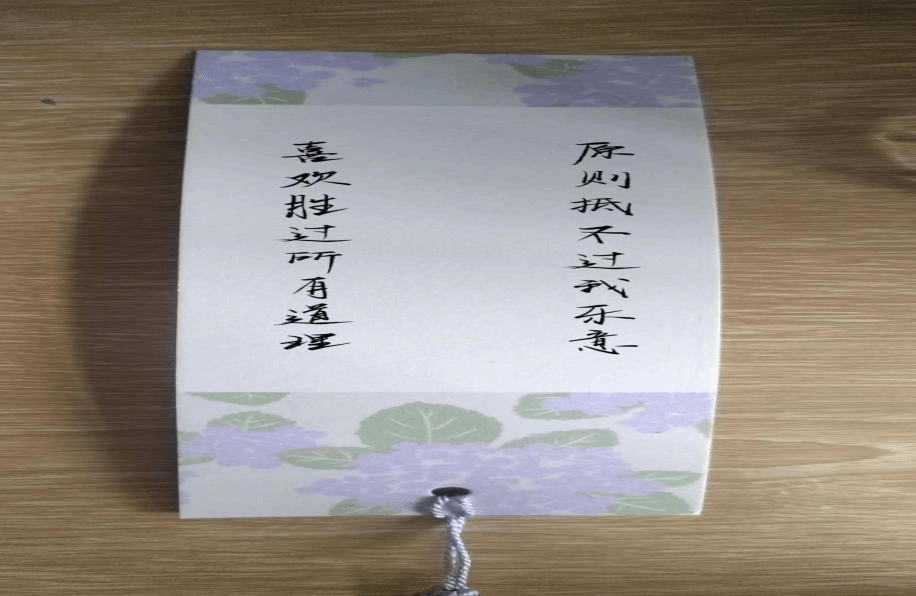 原则抵不过我乐意
喜欢胜过所有道理